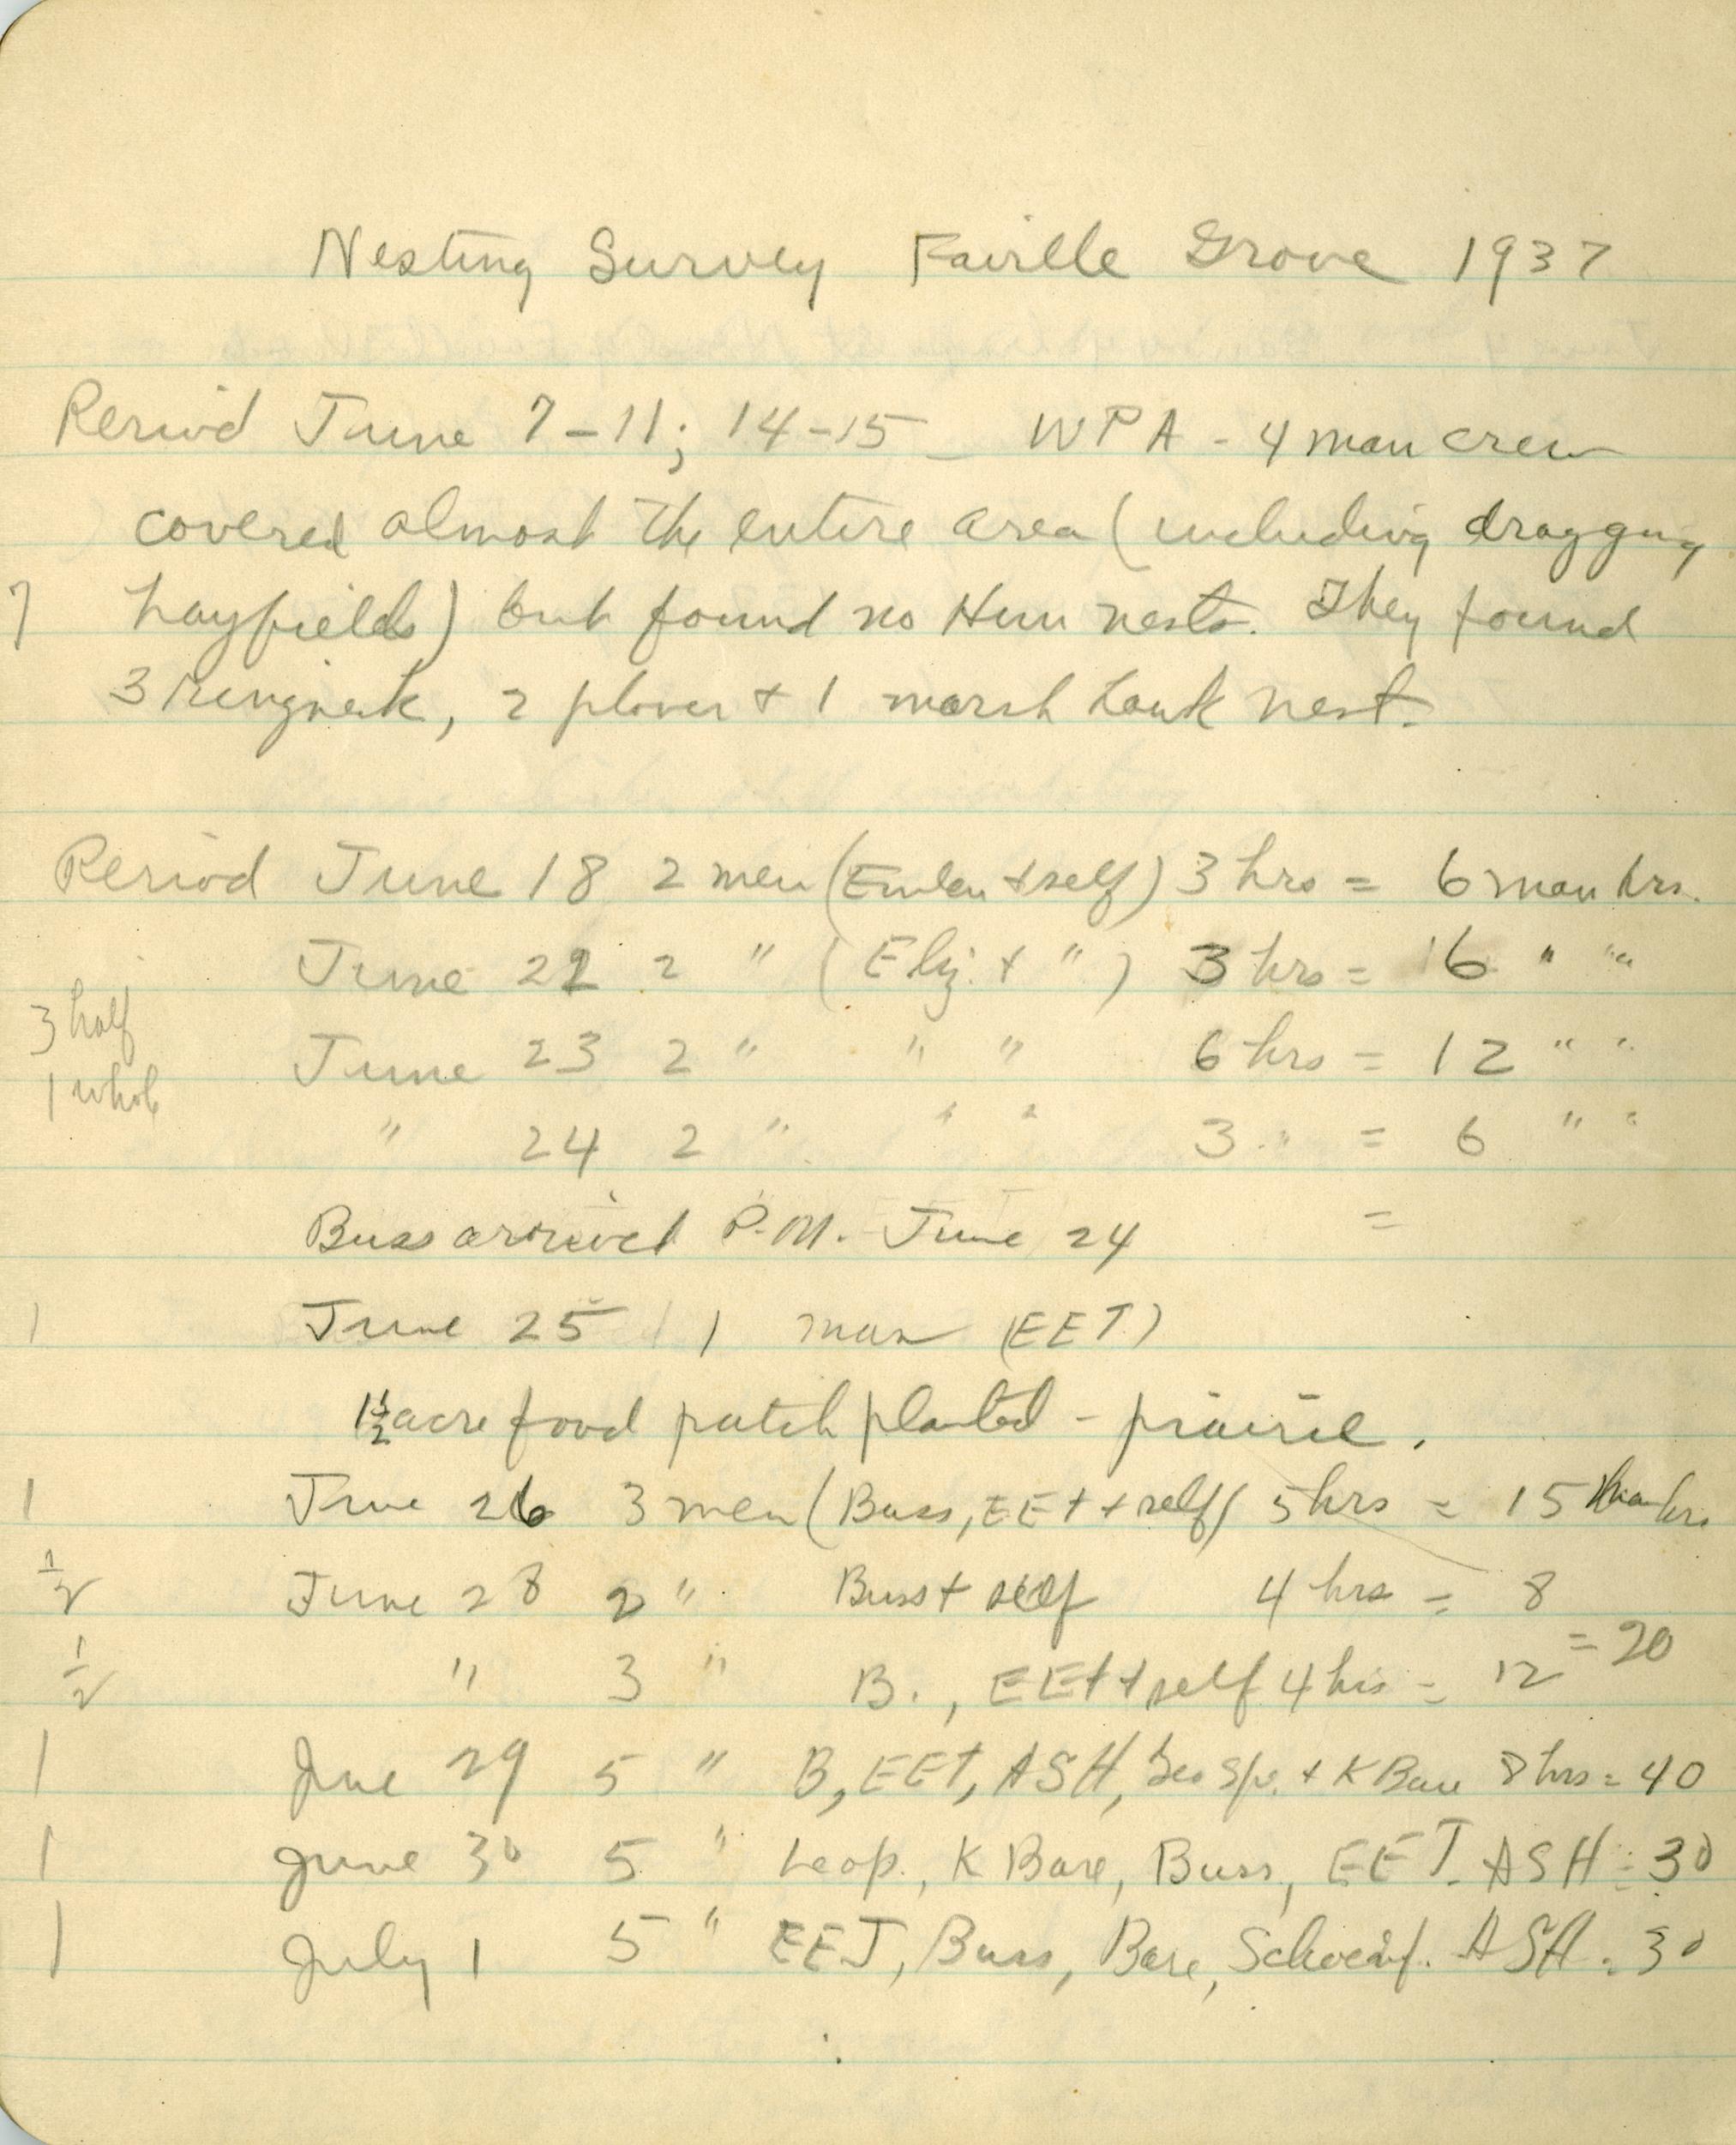 Nesting Survey Faville Grove 1937
Period June 7-11; 14-15 - WPA - 4 man crew
covered almost the entire area (including dragging
7 hayfields) but found no Hun nests. They found
3 ringneck, 2 plover + 1 marsh hawk nest.
Period June 18 2 men (Emlen + self) 3 hrs = 6 man hrs.
June 22 2 " (Eliz. + ") 3 hrs = 6 " "
3 half
June 23 2 " " " 6 hrs = 12 " "
1 whole
" 24 2 " " " 3 " = 6 " "
Buss arrived P.M. June 24 =
1 June 25 1 man (EET)
1½ acre food patch planted - prairie.
1 June 26 3 men (Buss, EET + self) 5 hrs = 15 man hrs
½ June 28 2 " Buss + self 4 hrs = 8
½ " 3 " B., EET + self 4 hrs = 12 = 20
1 June 29 5 " B, EET, ASH, Geo Sp. + K Bare 8 hrs = 40
1 June 30 5 " Leop., K Bare, Buss, EET. ASH = 30
1 July 1 5 " EET, Buss, Bare, ASH = 30